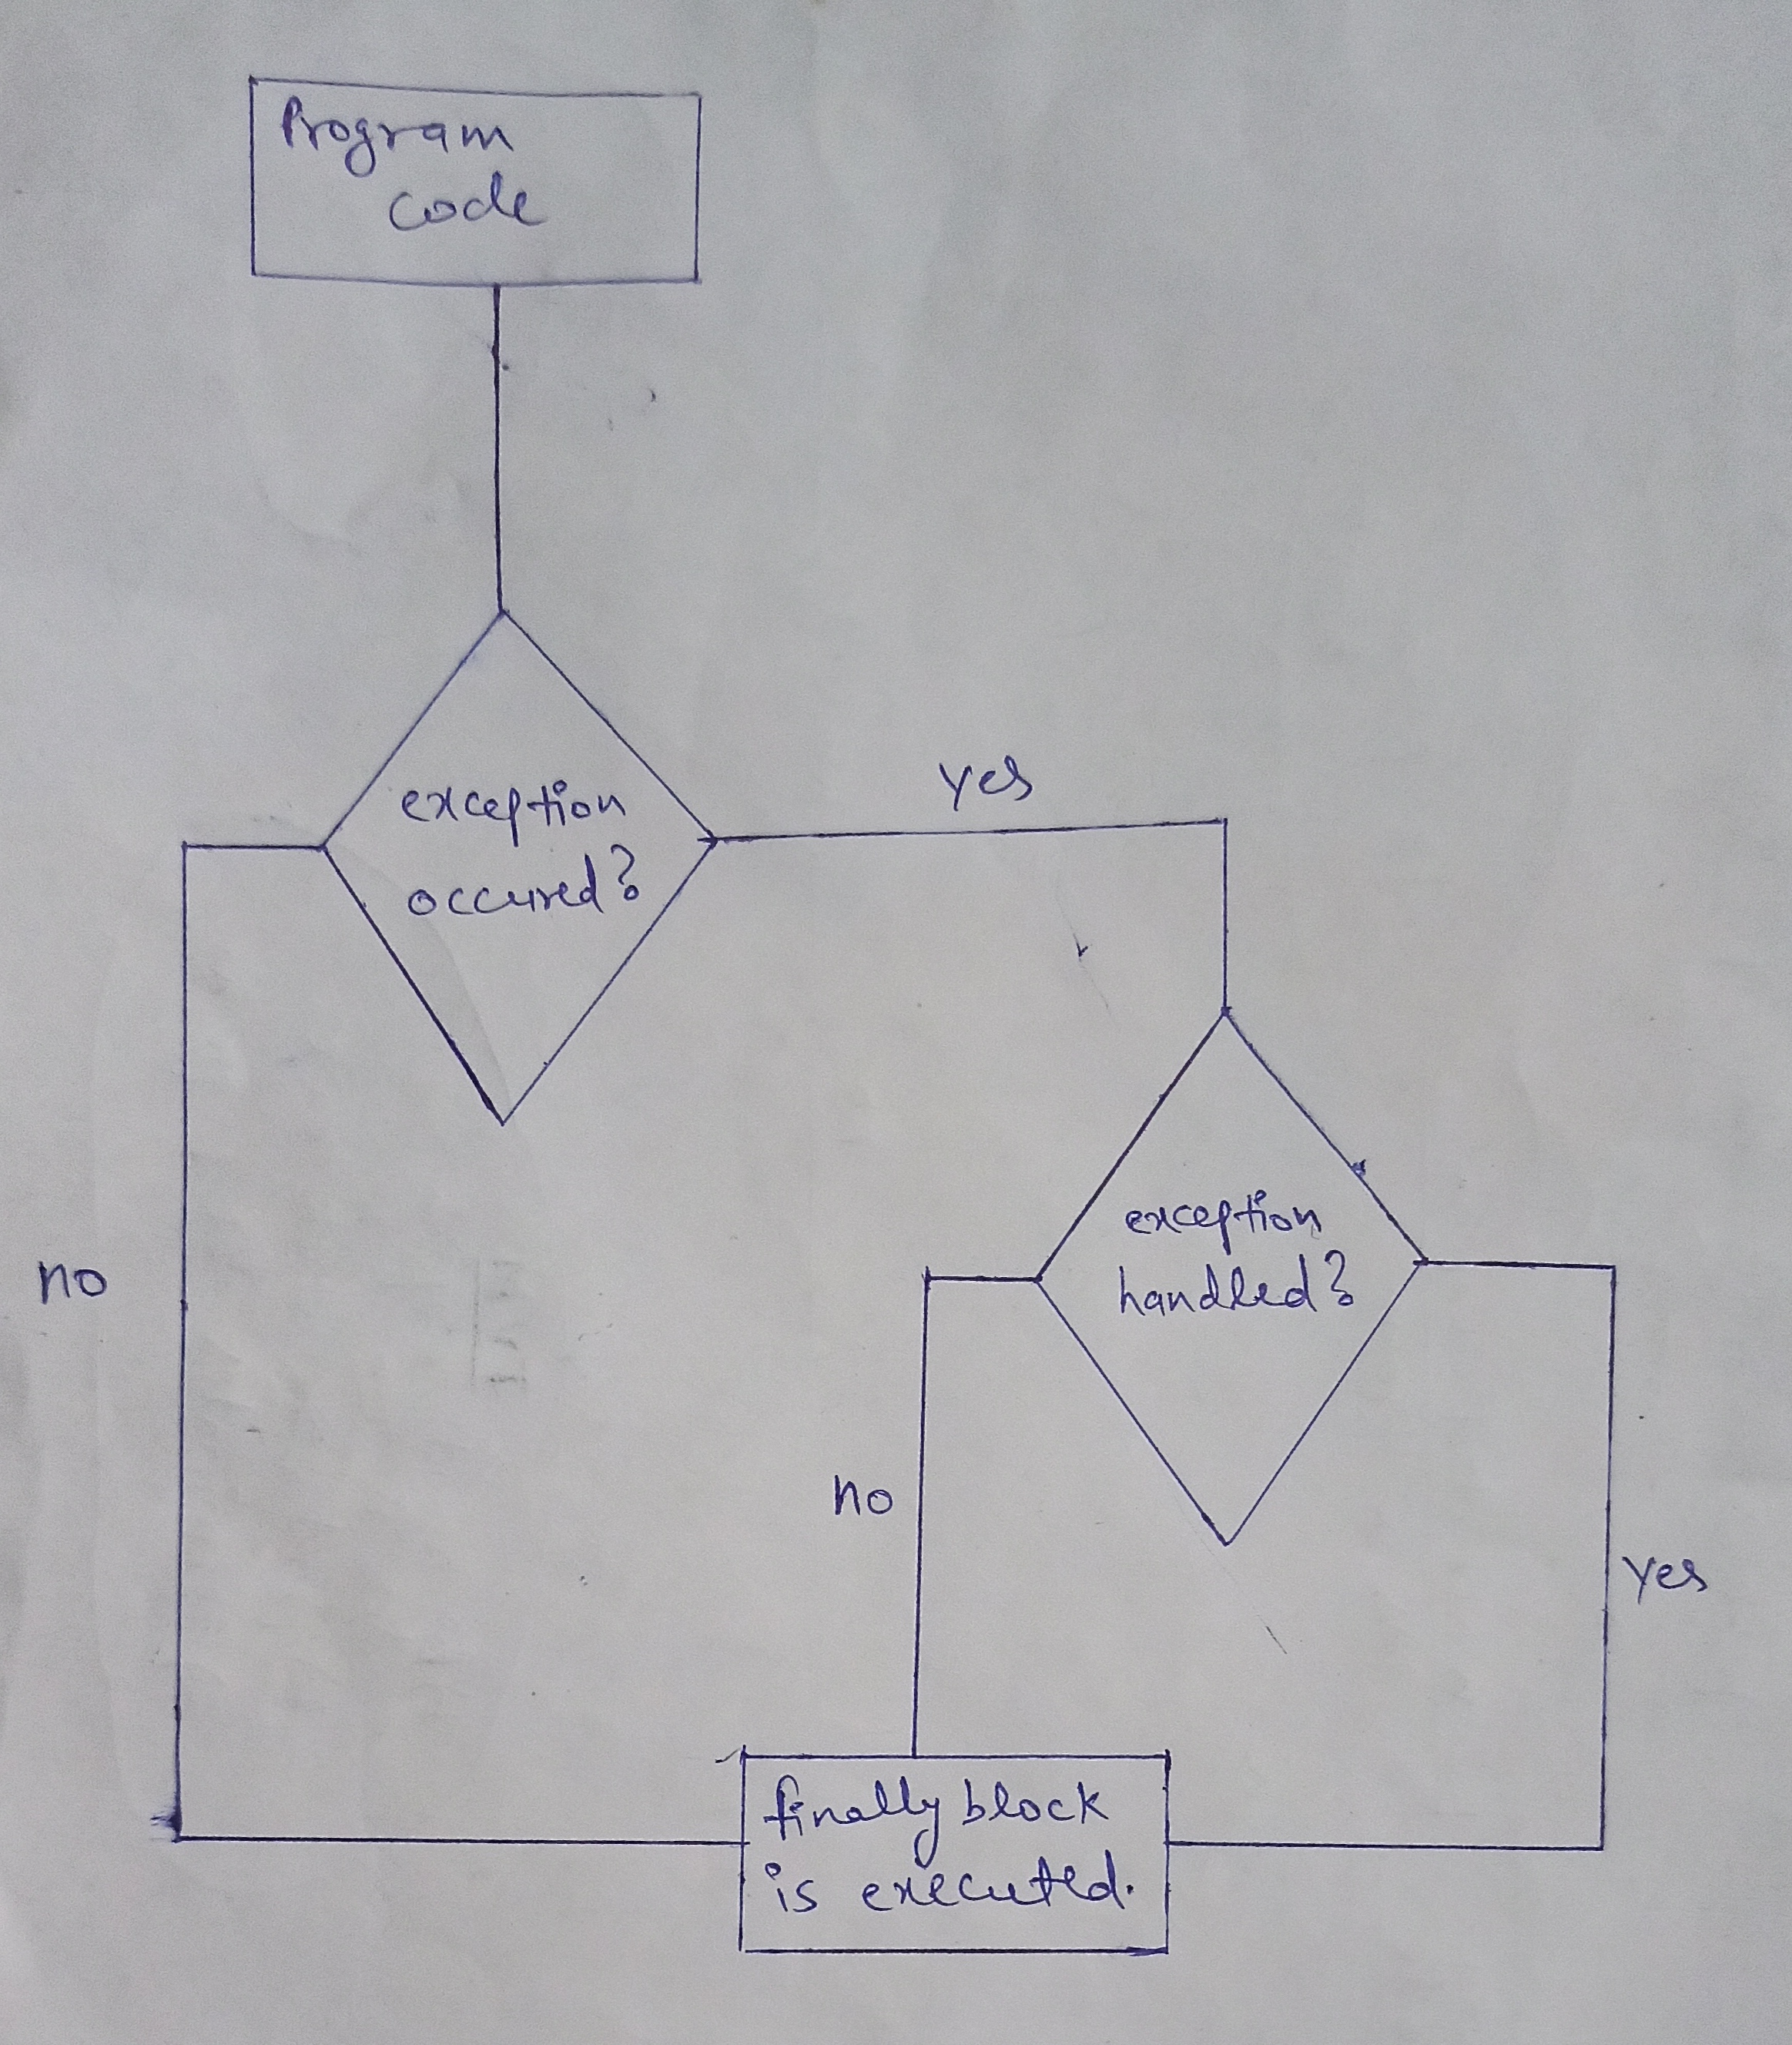 Program
code
exception
occured?
yes
no
exception
handled?
no
yes
finally block
is executed.